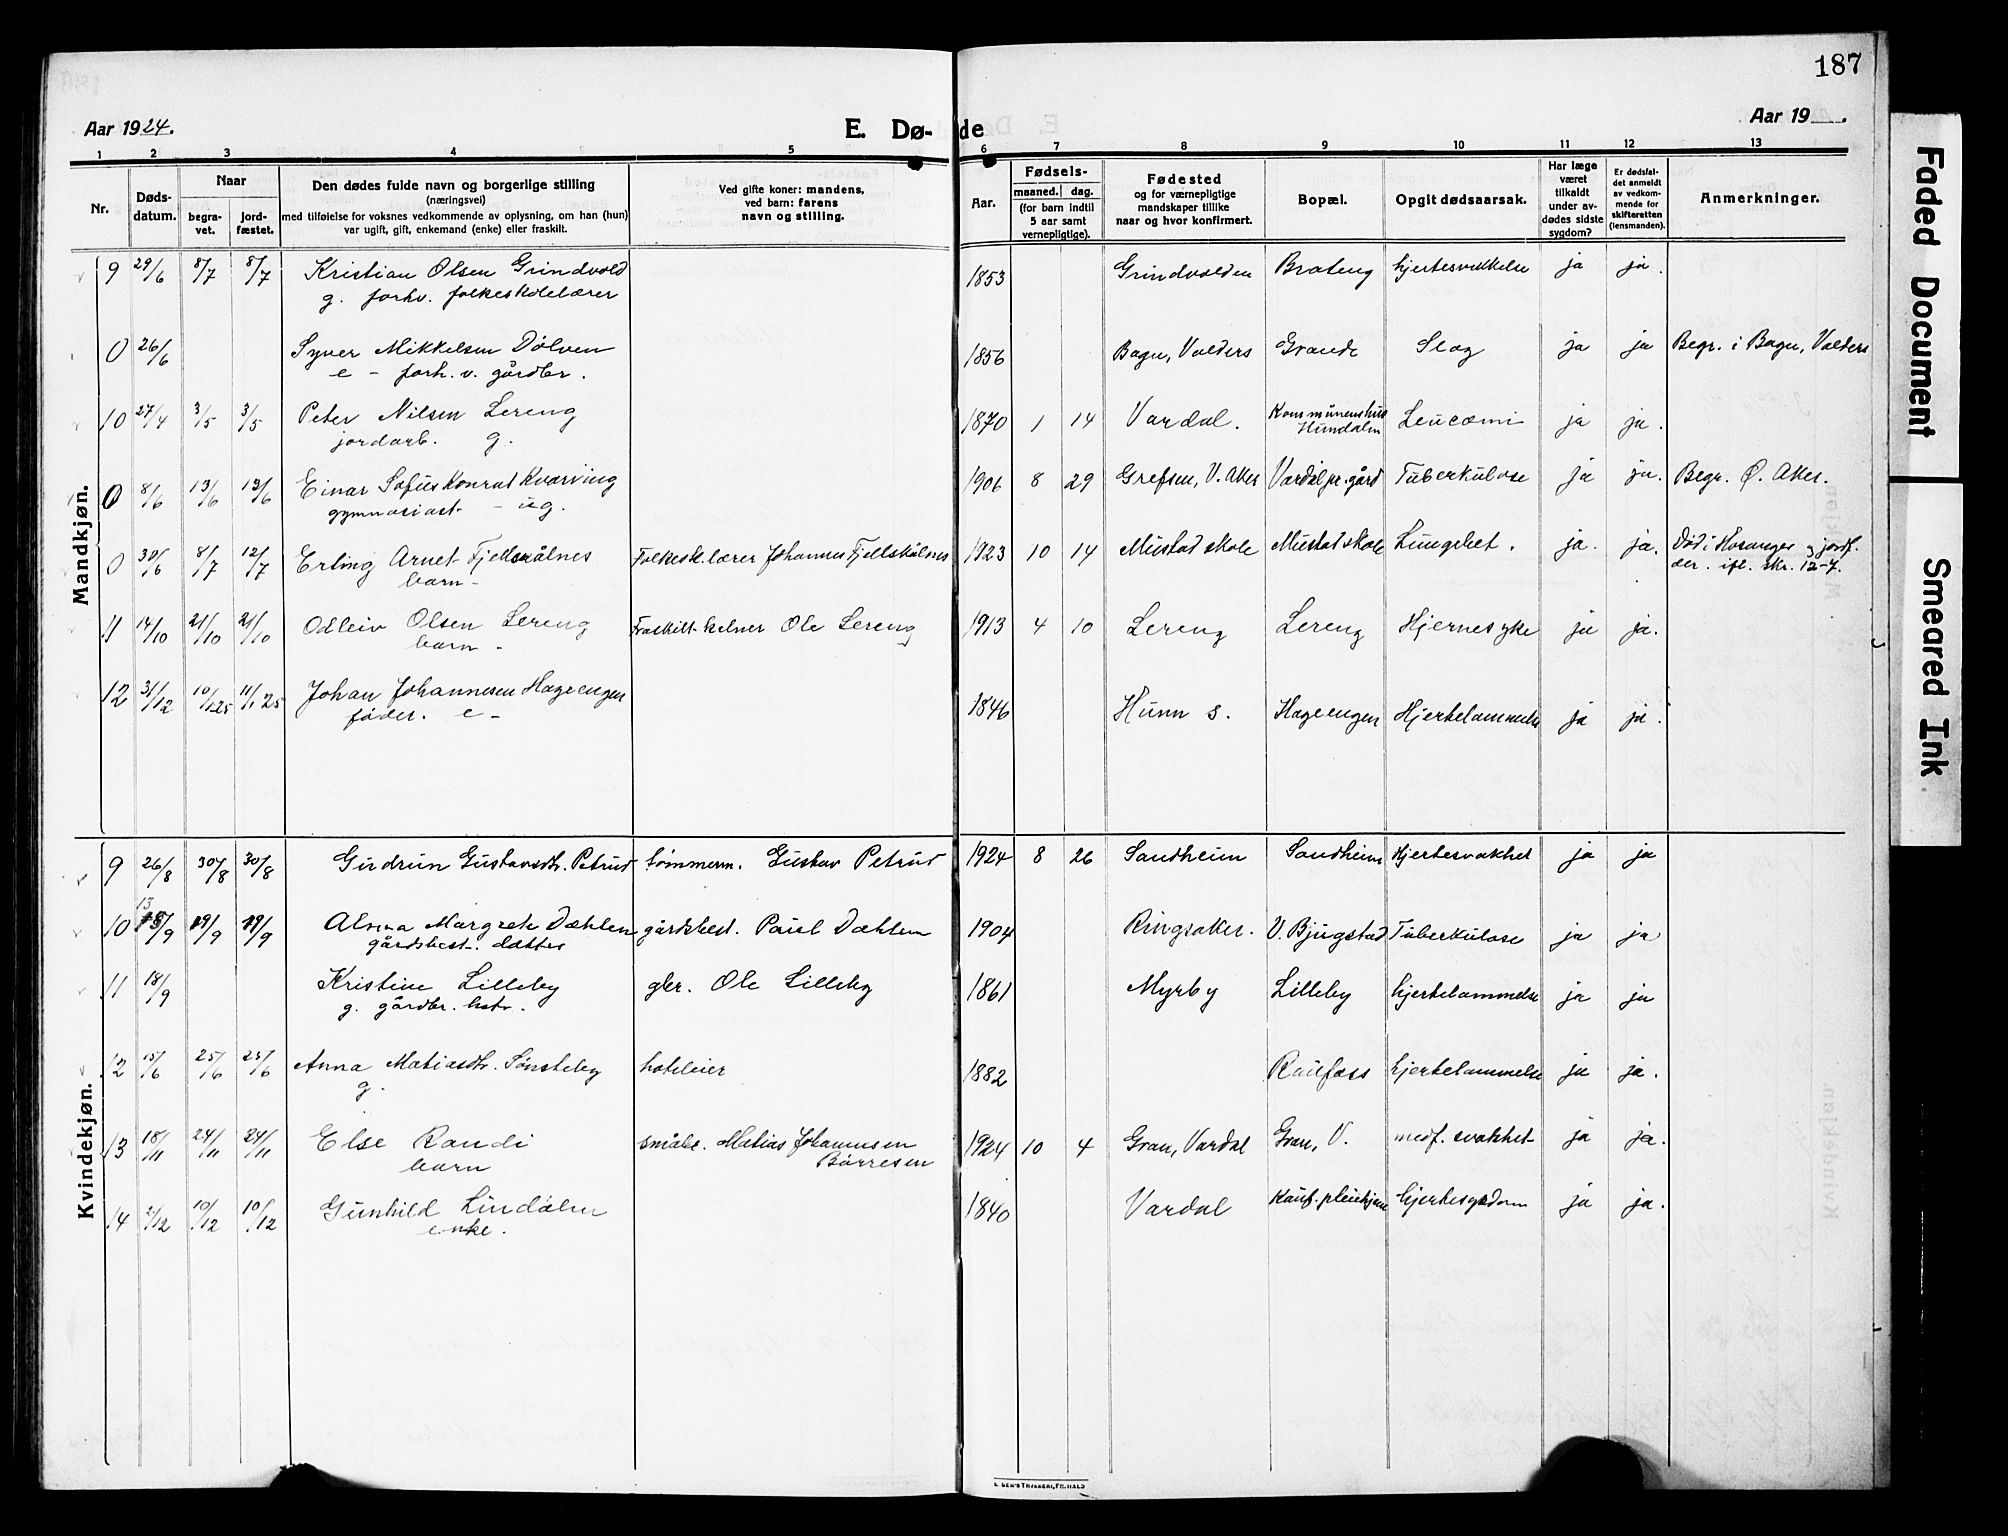 187
Aar 1924.
E. Dø-
de
Aar 19 .
1 2 3 4 5 6 7 8 9 10 11 12 13
Nr.
Døds-
datum.
Naar
begra-
vet.
jord-
fæstet.
Den dødes fulde navn og borgerlige stilling
(næringsvei)
med tilføielse for voksnes vedkommende av oplysning, om han (hun)
var ugift, gift, enkemand (enke) eller fraskilt.
Ved gifte koner: mandens,
ved barn: farens
navn og stilling.
Aar.
Fødsels-
maaned. dag.
(for barn indtil
5 aar samt
vernepligtige).
Fødested
og for værnepligtige
mandskaper tillike
naar og hvor konfirmert.
Bopæl.
Opgit dødsaarsak.
Har læge
været
tilkaldt
under av-
dødes sidste
sygdom?
Er dødsfal-
det anmeldt
av vedkom-
mende for
skifteretten
(lensmanden).
Anmerkninger.
Mandkjøn.
9 29/6 8/7 8/7 Kristian Olsen Grindvold 1853 Grindvolden Brateng hjertesvekkelse ja ja.
g. forhv. folkeskolelærer
0 26/6 Syver Mikkelsen Dølven 1856 Bagn, Valders Grande Slag ja ja Begr. i Bagn, Valders
e - forh. v. gårdbr.
10 27/4 3/5 3/5 Peter Nilsen Lereng 1870 1 14 Vardal. Kommunenshus Hunndalen Leucæmi ja ja.
jordarb. g.
0 8/6 13/6 13/6 Einar Sofus Konrat Kvarving 1906 8 29 Grefsen, V. Aker Vardal pr.gård Tuberkulose ja ja. Begr. Ø. Aker.
gymnasiast - ug.
0 30/6 8/7 12/7 Erling Arnet Fjellskålnes Folkesk.lærer Johannes Fjellskålnes 1923 10 14 Mustad skole Mustad skole Lungebet. ja. ja. Død i Hosanger og jordf.
barn - der. ifl. skr. 12-7.
11 14/10 21/10 21/10 Odleiv Olsen Lereng Fraskilt kelner Ole Lereng 1913 4 10 Lereng Lereng Hjernesyke ja ja.
barn -
12 31/12 10/1 25 11/1 25 Johan Johannesen Hageengen 1846 Hunn s. Hageengen Hjertelammelse ja ja.
føder. e -
Kvindekjøn.
9 26/8 30/8 30/8 Gudrun Gustavsdtr. Petrud tømmerm. Gustav Petrud 1924 8 26 Sandheim Sandheim Hjertesvakhet ja ja
10 13/9 19/9 19/9 Alma Margrete Dæhlen gårdbest. Paul Dæhlen 1904 Ringsaker. V. Bjugstad Tuberkulose ja ja
gårdsbest. datter
11 18/9 Kristine Lilleby gbr. Ole Lilleby 1861 Myrby Lilleby hjertelammelse ja ja
g. gårdbr. hstr.
12 15/6 25/6 25/6 Anna Matiasdtr. Sønsteby hoteleier 1882 Raufoss hjertelammelse ja ja.
g.
13 18/11 24/11 24/11 Else Randi småbr. Matias Johannsen 1924 10 4 Gran, Vardal Gran, V. medf. svakhet ja ja.
barn Børresen
14 2/12 10/12 10/12 Gunhild Lindalen 1840 Vardal Rauf. pleiehjem hjertesygdom ja ja.
enke.
Faded Document
Smeared Ink